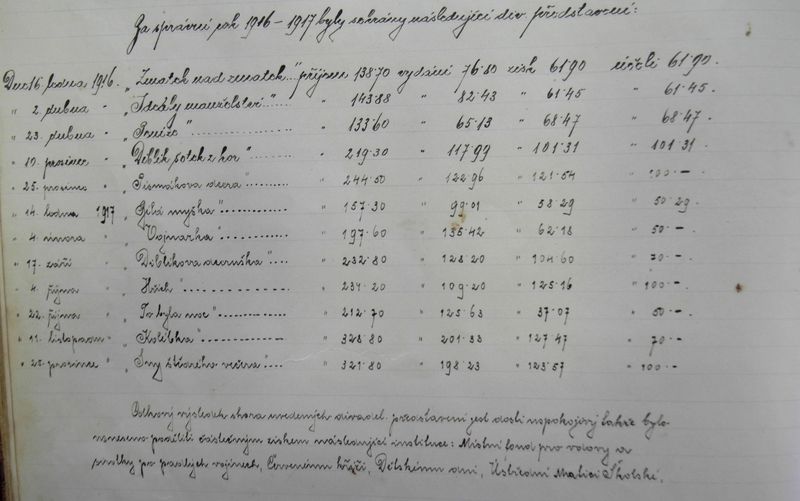 Za správní rok 1916–1917 byly sehrány následující div. představení:
Dne 16. ledna 1916. „Zmatek nad zmatek" příjem 138·70 vydání 76·80 zisk 61·90 čistý 61·90.
„ 2. dubna „ „Ideály manželství" „ 143·88 „ 82·43 „ 61·45 „ 61·45.
„ 23. dubna „ „ 133·60 „ 65·13 „ 68·47 „ 68·47.
„ 10. prosince „ 219·30 „ 117·99 „ 101·31 „ 101·31.
„ 25. prosince „ „Písmákova dcera" 244·50 „ 122·96 „ 121·54 „ 100·–
„ 14. ledna 1917 „Bílá myška" „ 157·30 „ 99·01 „ 58·29 „ 50·29.
„ 4. února „ „Vojnarka" „ 197·60 „ 135·42 „ 62·18 „ 50·–
„ 17. září „ 232·80 „ 128·20 „ 104·60 „ 70·–
„ 4. října „Hřích" „ 234·20 „ 109·20 „ 125·16 „ 100·–
„ 22. října „ „To byla noc" „ 212·70 „ 125·63 „ 37·07 „ 50·–
„ 11. listopadu „ „Kolébka" „ 328·80 „ 201·33 „ 127·47 „ 70·–
„ 25. prosince „ „Sny štědrého večera" „ 321·80 „ 198·23 „ 123·57 „ 100·–
výsledek shora uvedených divadel. představení jest dosti uspokojivý takže bylo
usneseno poděliti částečným ziskem následující instituce: Místní fond pro vdovy a
sirotky po padlých vojínech, Červenému kříži, Dětskému dni, Ústřední Matici Školské.